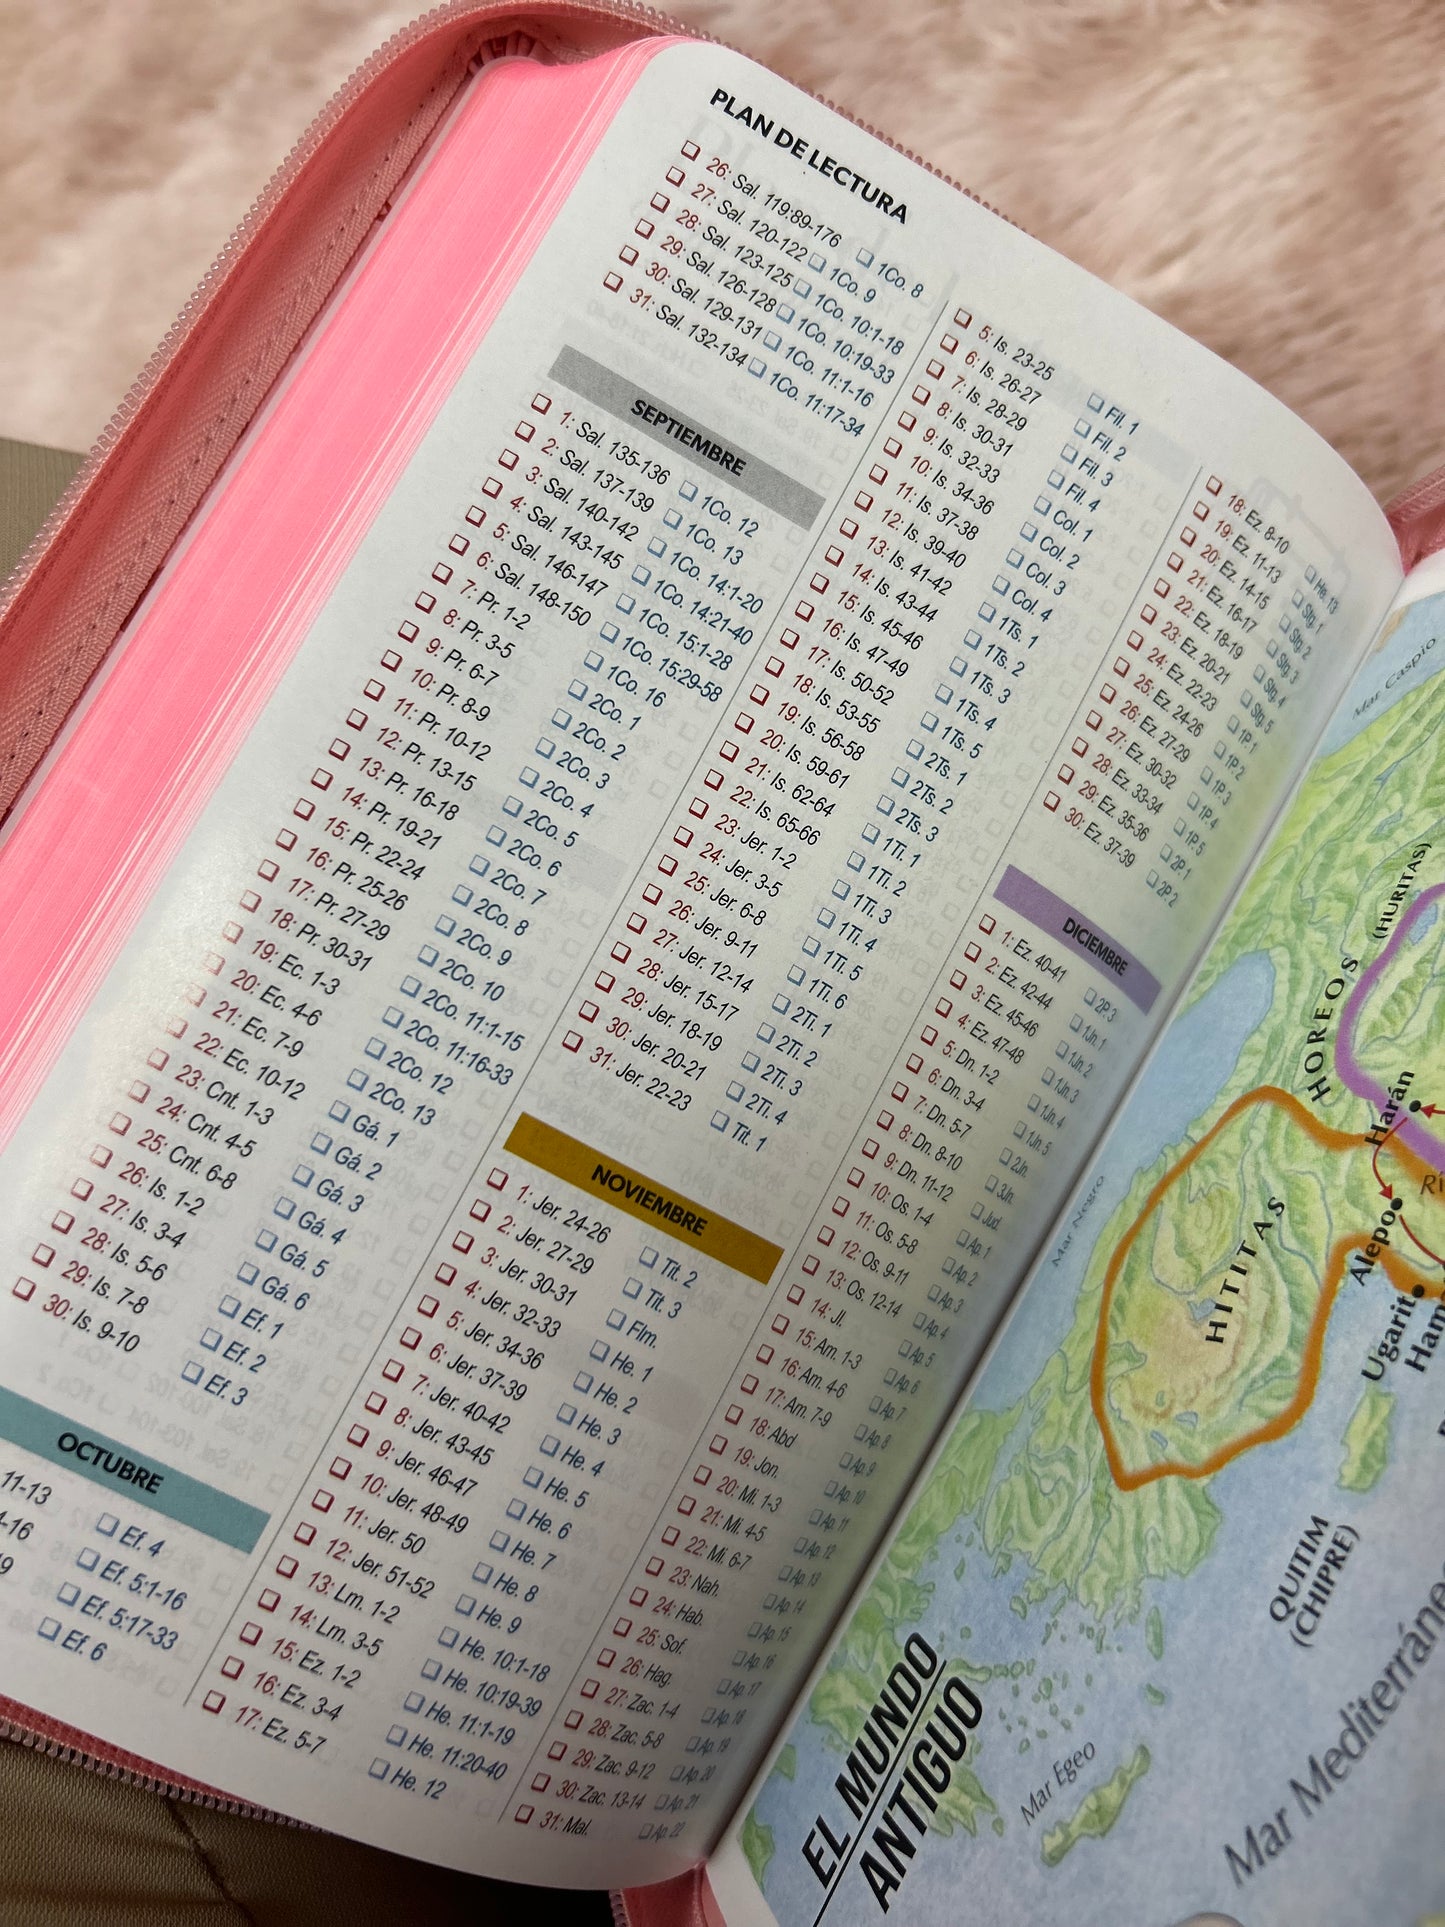 PLAN DE LECTURA
26: Sal. 119:89-176 1Co. 8
27: Sal. 120-122 1Co. 9
28: Sal. 123-125 1Co. 10:1-18
29: Sal. 126-128 1Co. 10:19-33
30: Sal. 129-131 1Co. 11:1-16
31: Sal. 132-134 1Co. 11:17-34
SEPTIEMBRE
1: Sal. 135-136 1Co. 12
2: Sal. 137-139 1Co. 13
3: Sal. 140-142 1Co. 14:1-20
4: Sal. 143-145 1Co. 14:21-40
5: Sal. 146-147 1Co. 15:1-28
6: Sal. 148-150 1Co. 15:29-58
7: Pr. 1-2 1Co. 16
8: Pr. 3-5 2Co. 1
9: Pr. 6-7 2Co. 2
10: Pr. 8-9 2Co. 3
11: Pr. 10-12 2Co. 4
12: Pr. 13-15 2Co. 5
13: Pr. 16-18 2Co. 6
14: Pr. 19-21 2Co. 7
15: Pr. 22-24 2Co. 8
16: Pr. 25-26 2Co. 9
17: Pr. 27-29 2Co. 10
18: Pr. 30-31 2Co. 11:1-15
19: Ec. 1-3 2Co. 11:16-33
20: Ec. 4-6 2Co. 12
21: Ec. 7-9 2Co. 13
22: Ec. 10-12 Gá. 1
23: Cnt. 1-3 Gá. 2
24: Cnt. 4-5 Gá. 3
25: Cnt. 6-8 Gá. 4
26: Is. 1-2 Gá. 5
27: Is. 3-4 Gá. 6
28: Is. 5-6 Ef. 1
29: Is. 7-8 Ef. 2
30: Is. 9-10 Ef. 3
OCTUBRE
11-13 Ef. 4
-16 Ef. 5:1-16
9 Ef. 5:17-33
Ef. 6
5: Is. 23-25 Fil. 1
6: Is. 26-27 Fil. 2
7: Is. 28-29 Fil. 3
8: Is. 30-31 Fil. 4
9: Is. 32-33 Col. 1
10: Is. 34-36 Col. 2
11: Is. 37-38 Col. 3
12: Is. 39-40 Col. 4
13: Is. 41-42 1Ts. 1
14: Is. 43-44 1Ts. 2
15: Is. 45-46 1Ts. 3
16: Is. 47-49 1Ts. 4
17: Is. 50-52 1Ts. 5
18: Is. 53-55 2Ts. 1
19: Is. 56-58 2Ts. 2
20: Is. 59-61 2Ts. 3
21: Is. 62-64 1Ti. 1
22: Is. 65-66 1Ti. 2
23: Jer. 1-2 1Ti. 3
24: Jer. 3-5 1Ti. 4
25: Jer. 6-8 1Ti. 5
26: Jer. 9-11 1Ti. 6
27: Jer. 12-14 2Ti. 1
28: Jer. 15-17 2Ti. 2
29: Jer. 18-19 2Ti. 3
30: Jer. 20-21 2Ti. 4
31: Jer. 22-23 Tit. 1
NOVIEMBRE
1: Jer. 24-26 Tit. 2
2: Jer. 27-29 Tit. 3
3: Jer. 30-31 Flm.
4: Jer. 32-33 He. 1
5: Jer. 34-36 He. 2
6: Jer. 37-39 He. 3
7: Jer. 40-42 He. 4
8: Jer. 43-45 He. 5
9: Jer. 46-47 He. 6
10: Jer. 48-49 He. 7
11: Jer. 50 He. 8
12: Jer. 51-52 He. 9
13: Lm. 1-2 He. 10:1-18
14: Lm. 3-5 He. 10:19-39
15: Ez. 1-2 He. 11:1-19
16: Ez. 3-4 He. 11:20-40
17: Ez. 5-7 He. 12
18: Ez. 8-10 He. 13
19: Ez. 11-13 Stg. 1
20: Ez. 14-15 Stg. 2
21: Ez. 16-17 Stg. 3
22: Ez. 18-19 Stg. 4
23: Ez. 20-21 Stg. 5
24: Ez. 22-23 1P. 1
25: Ez. 24-26 1P. 2
26: Ez. 27-29 1P. 3
27: Ez. 30-32 1P. 4
28: Ez. 33-34 1P. 5
29: Ez. 35-36 2P. 1
30: Ez. 37-39 2P. 2
DICIEMBRE
1: Ez. 40-41 2P. 3
2: Ez. 42-44 1Jn. 1
3: Ez. 45-46 1Jn. 2
4: Ez. 47-48 1Jn. 3
5: Dn. 1-2 1Jn. 4
6: Dn. 3-4 1Jn. 5
7: Dn. 5-7 2Jn.
8: Dn. 8-10 3Jn.
9: Dn. 11-12 Jud.
10: Os. 1-4 Ap. 1
11: Os. 5-8 Ap. 2
12: Os. 9-11 Ap. 3
13: Os. 12-14 Ap. 4
14: Jl. Ap. 5
15: Am. 1-3 Ap. 6
16: Am. 4-6 Ap. 7
17: Am. 7-9 Ap. 8
18: Abd Ap. 9
19: Jon. Ap. 10
20: Mi. 1-3 Ap. 11
21: Mi. 4-5 Ap. 12
22: Mi. 6-7 Ap. 13
23: Nah. Ap. 14
24: Hab. Ap. 15
25: Sof. Ap. 16
26: Hag. Ap. 17
27: Zac. 1-4 Ap. 18
28: Zac. 5-8 Ap. 19
29: Zac. 9-12 Ap. 20
30: Zac. 13-14 Ap. 21
31: Mal. Ap. 22
Mar Caspio
(HURITAS)
HOREOS
Harán
Mar Negro
HITITAS
Alepo
Ugarit
Ham
QUITIM
(CHIPRE)
EL MUNDO
ANTIGUO
Mar Egeo
Mar Mediterráne